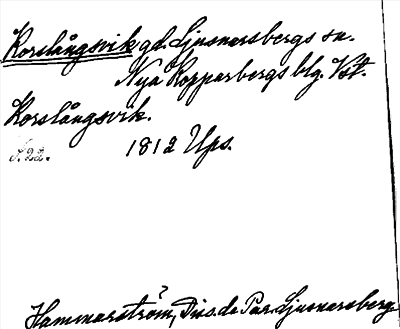 Korslångsvik gd. Ljusnarsbergs sn.
Nya Kopparbergs blg. Vst.
Korslångsvik.
S. 22. 1812 Ups.
Hammarström,? Diss. de Par. Ljusnarsberg.